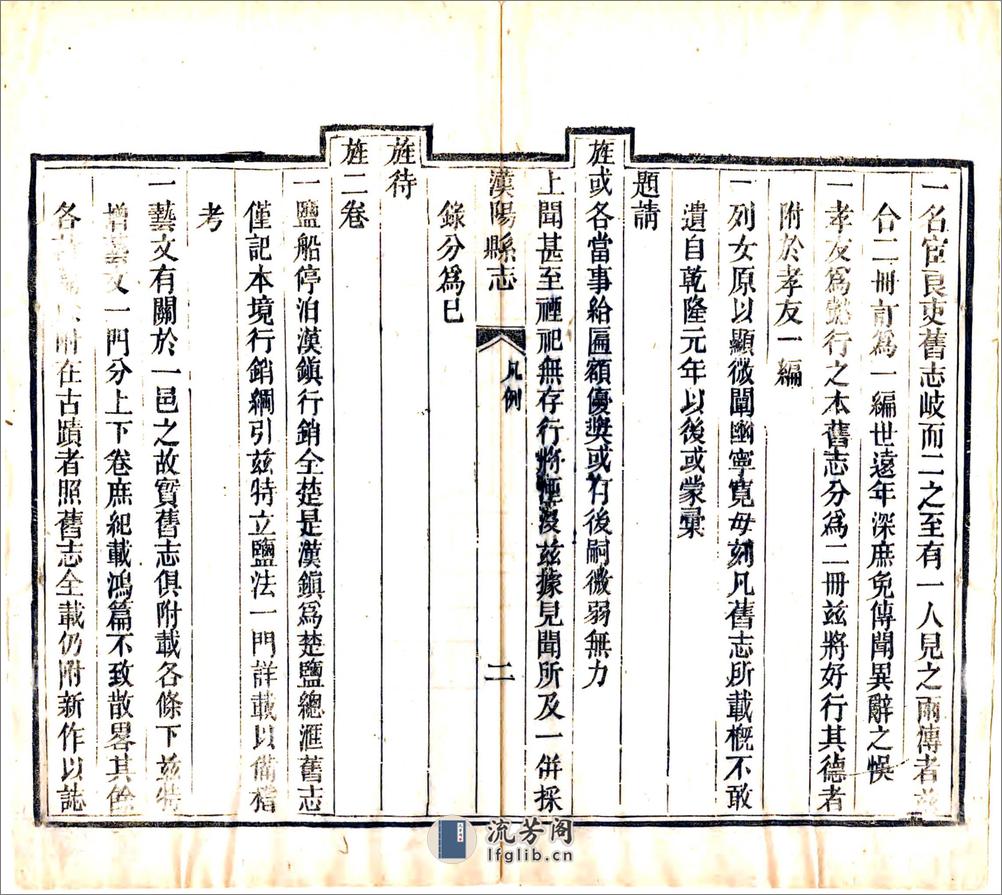 一名宦良吏舊志岐而二之至有一人見之兩傳者茲
合二冊訂爲一編世遠年深庶免傳聞異辭之悞
一孝友爲懿行之本舊志分爲二冊茲將好行其德者
附於孝友一編
一列女原以顯微闡幽寧寛毋刻凡舊志所載概不敢
遺自乾隆元年以後或蒙彙
題請
旌或各當事給匾額優奬或有後嗣微弱無力
上聞甚至禋祀無存行將湮沒茲據見聞所及一併採
漢陽縣志
凡例
二
錄分爲已
旌待
旌二卷
一鹽船停泊漢鎭行銷全楚是漢鎭爲楚鹽總滙舊志
僅記本境行銷綱引兹特立鹽法一門詳載以備稽
考
一藝文有關於一邑之故實舊志俱附載各條下兹特
增藝文一門分上下卷庶紀載鴻篇不致散畧其餘
各 附在古蹟者照舊志全載仍附新作以誌
流芳阁
lfglib.cn